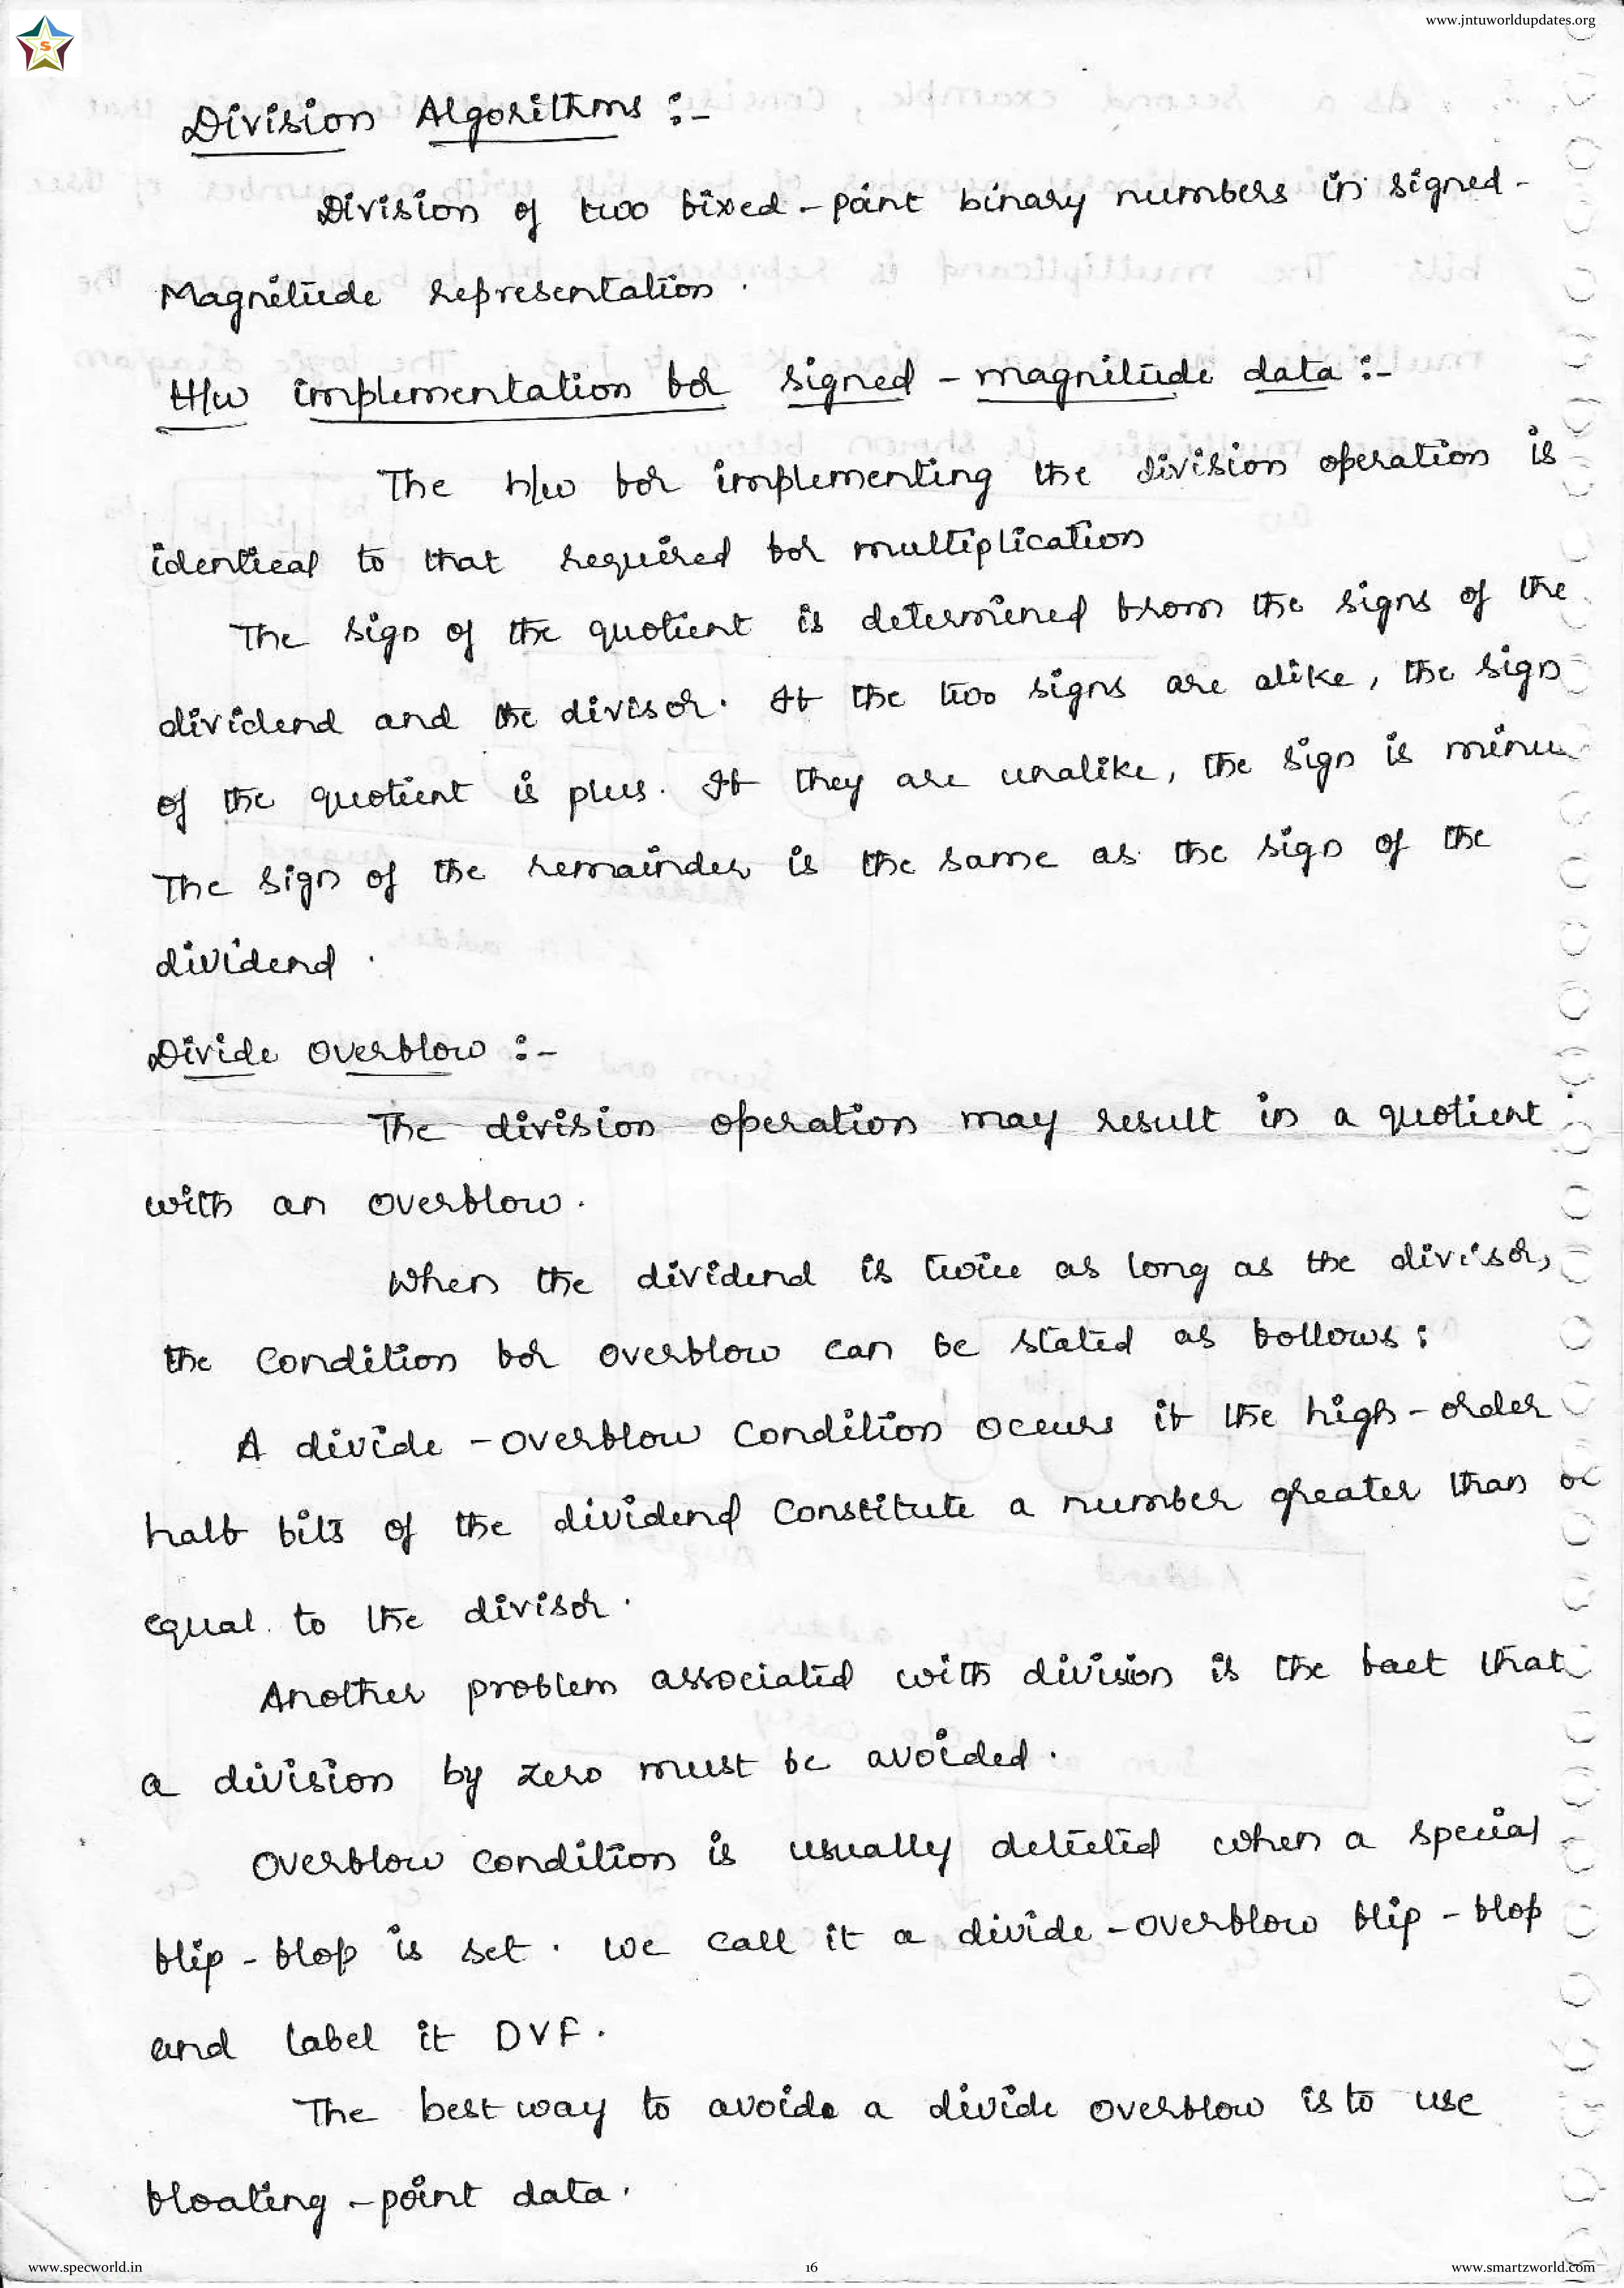 www.jntuworldupdates.org
S
Division Algorithms :-
Division of two fixed - point binary numbers in signed -
Magnitude representation .
H/w implementation for signed - magnitude data :-
The h/w for implementing the division operation is
identical to that required for multiplication
The sign of the quotient is determined from the signs of the
dividend and the divisor. If the two signs are alike, the sign
of the quotient is plus. If they are unalike, the sign is minu
The sign of the remainder is the same as the sign of the
dividend .
Divide overflow :-
The division operation may result in a quotient
with an overflow .
When the dividend is twice as long as the divisor,
the condition for overflow can be stated as follows :
A divide - overflow condition occurs if the high - order
half bits of the dividend constitute a number greater than or
equal to the divisor .
Another problem associated with division is the fact that
a division by zero must be avoided .
Overflow condition is usually detected when a special
flip - flop is set . we call it a divide - overflow flip - flop
and label it DVF .
The best way to avoide a divide overflow is to use
floating - point data .
www.specworld.in
16
www.smartzworld.com